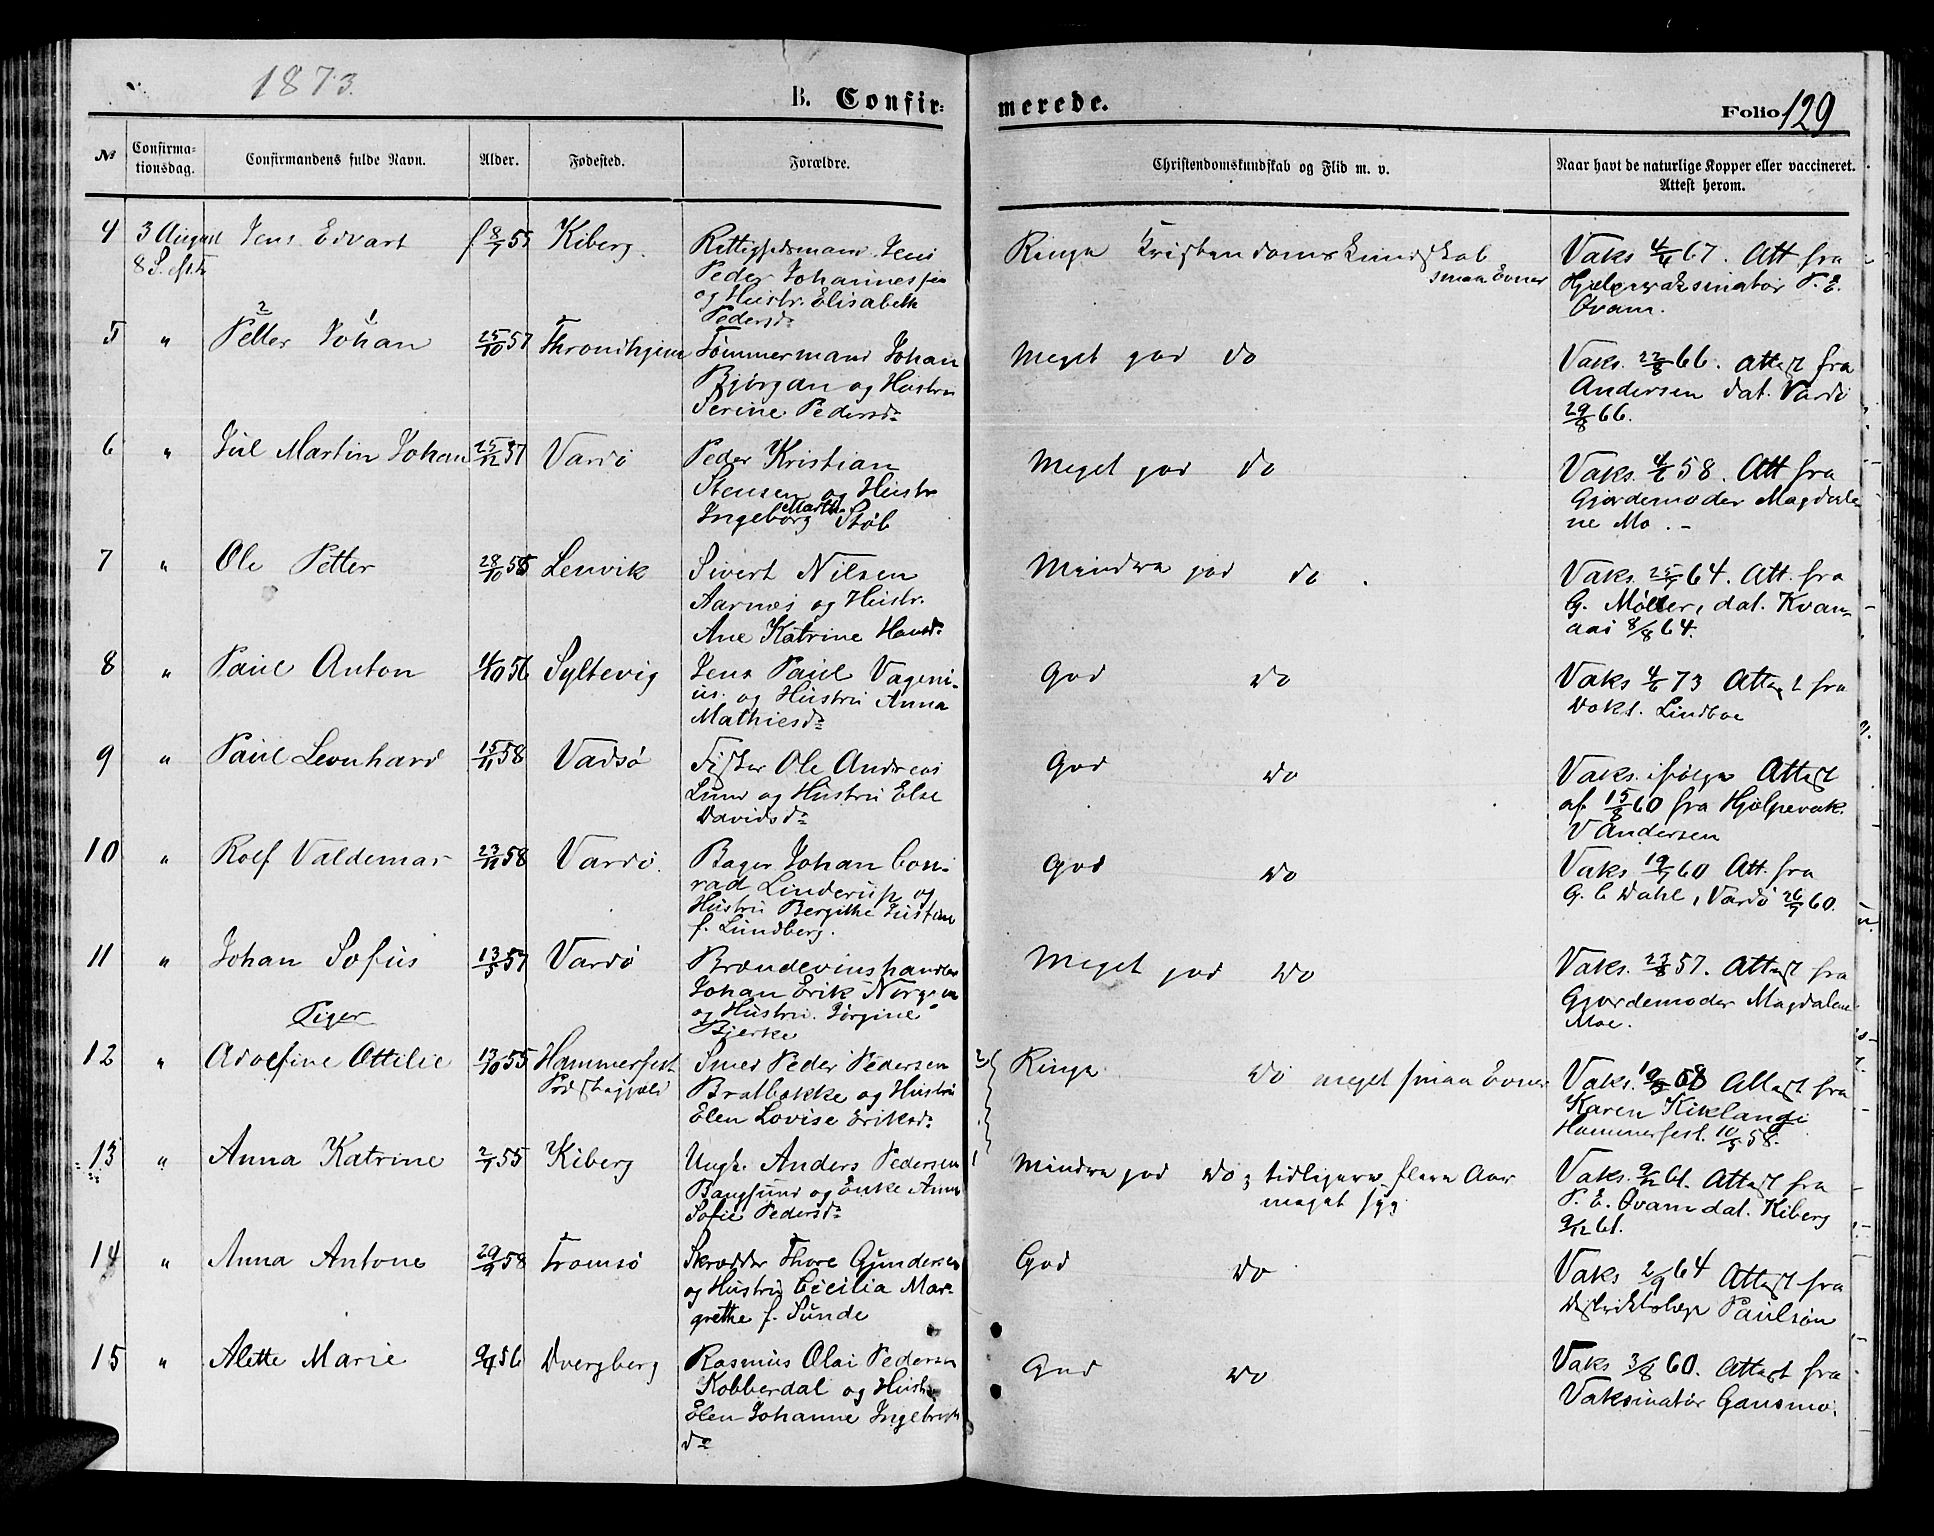 1873.
B. Confir-
merede.
Folio 129
No
Confirma-
tionsdag.
Confirmandens fulde Navn.
Alder.
Fødested.
Forældre.
Christendomskundskab og Flid m. v.
Naar havt de naturlige Kopper eller vaccineret.
Attest herom.
4 3 August Jens Edvart f 8/7 55 Kiberg. Rettighedsmand Jens
8 S. eftr Peder Johannessen
og Hustr. Elisabeth
Pedersd.
Ringe Kristendomskundskab
smaa Evner
Vaks 4/6 67. Att fra
Hjelpevaksinatør P. E.
Qvam.
5 " 2 Petter 1 Johan 25/10 57 Throndhjem Tømmermand Johan
Bjørgan og Hustru
Serine Pedersd.
Meget god do
Vaks. 22/8 66. Attest fra
Andersen dat. Vardø
29/8 66.
6 " Jul Martin Johan 25/12 57 Vardø Peder Kristian
Stensen og Hustr.
Ingeborg Marth. Støb
Meget god do
Vaks. 4/6 58. Att fra
Gjordemoder Magdale-
ne Mo. -
7 " Ole Petter 28/10 56 Lenvik Sivert Nilsen
Aarnes og Hustr.
Ane Katrine Hansd.
Mindre god do.
Vaks. 25/7 64. Att. fra
G. Møller, dat. Kvan-
aas 8/8 64.
8 " Paul Anton 4/10 56 Syltevig Jens Paul Vageni-
us. og Hustru Anna
Mathiesd.
God do
Vaks 4/6 73 Attest fra
Dokt. Lindboe
9 " Paul Leonhard 15/11 58 Vadsø Fisker Ole Andreas
Lund og Hustru Else
Davidsd.
God do
Vaks. ifølge Attest
af 15/8 60 fra Hjelpevak.
V Andersen
10 " Rolf Valdemar 23/11 58 Vardø. Bager Johan Con-
rad Linderup og
Hustru Bergithe Justine
f. Lundberg.
God do
Vaks 19/7 60 Att. fra
G. C Dahl, Vardø 26/7 60.
11 " Johan Sofus 13/5 57 Vardø Brændevinshandler
Johan Erik Norgren
og Hustru Jørgine
Bjerke
Meget god do
Vaks. 27/8 57. Attest fra
Gjordemoder Magdalene
Moe.
Piger
12 " Adolfine Ottilie 13/10 55 Hammerfest Smed Peder Pedersen
Præstegjæld Bratbakke og Hustru
Elen Lovise Eriksd.
2 Ringe do meget smaa Evner
Vaks. 58 Attest fra
Karen Kiklange
Hammerfest. 10/5 58.
13 " Anna Katrine 2/7 55 Kiberg Ungk. Anders Pedersen
Bangsund og Enke Anne
Sofie Pedersd.
1 Mindre god do; tidligere flere Aar
meget syg
Vaks. 9/12 61. Attest fra
P. E. Qvam dat. Kiberg
9/12 61.
14 " Anna Antone 29/9 58 Tromsø Skrædder Thore Gundersen
og Hustru Cecilia Mar-
grethe f. Sunde
God do
Vaks 2/9 64 Attest fra
Distriktslæge Paulson
15 " Alette Marie 9/4 56 Dvergberg Rasmus Olai Pedersen
Kobberdal og Hustr.
Elen Johanne Ingebrigts
d.
God do
Vaks 3/8 60. Attest fra
Vaksinatør Gausmo.